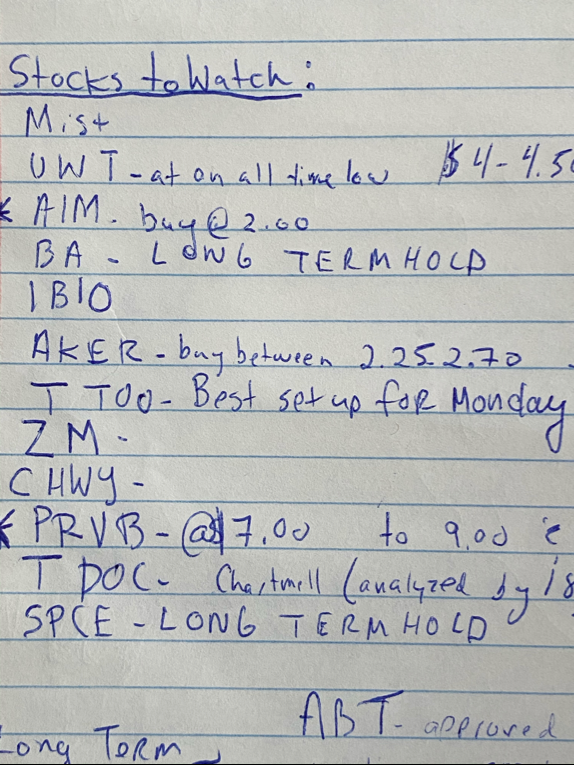 Stocks to Watch:
Mist
UWT - at an all time low $4-4.50
* AIM. buy @ 2.00
BA - LONG TERM HOLD
IBIO
AKER - buy between 2.25-2.70
TTOO - Best set up for Monday
ZM -
CHWY -
* PRVB - @$7.00 to 9.00
TDOC - Chartmill (analyzed by
SPCE - LONG TERM HOLD
ABT - approved
Long Term